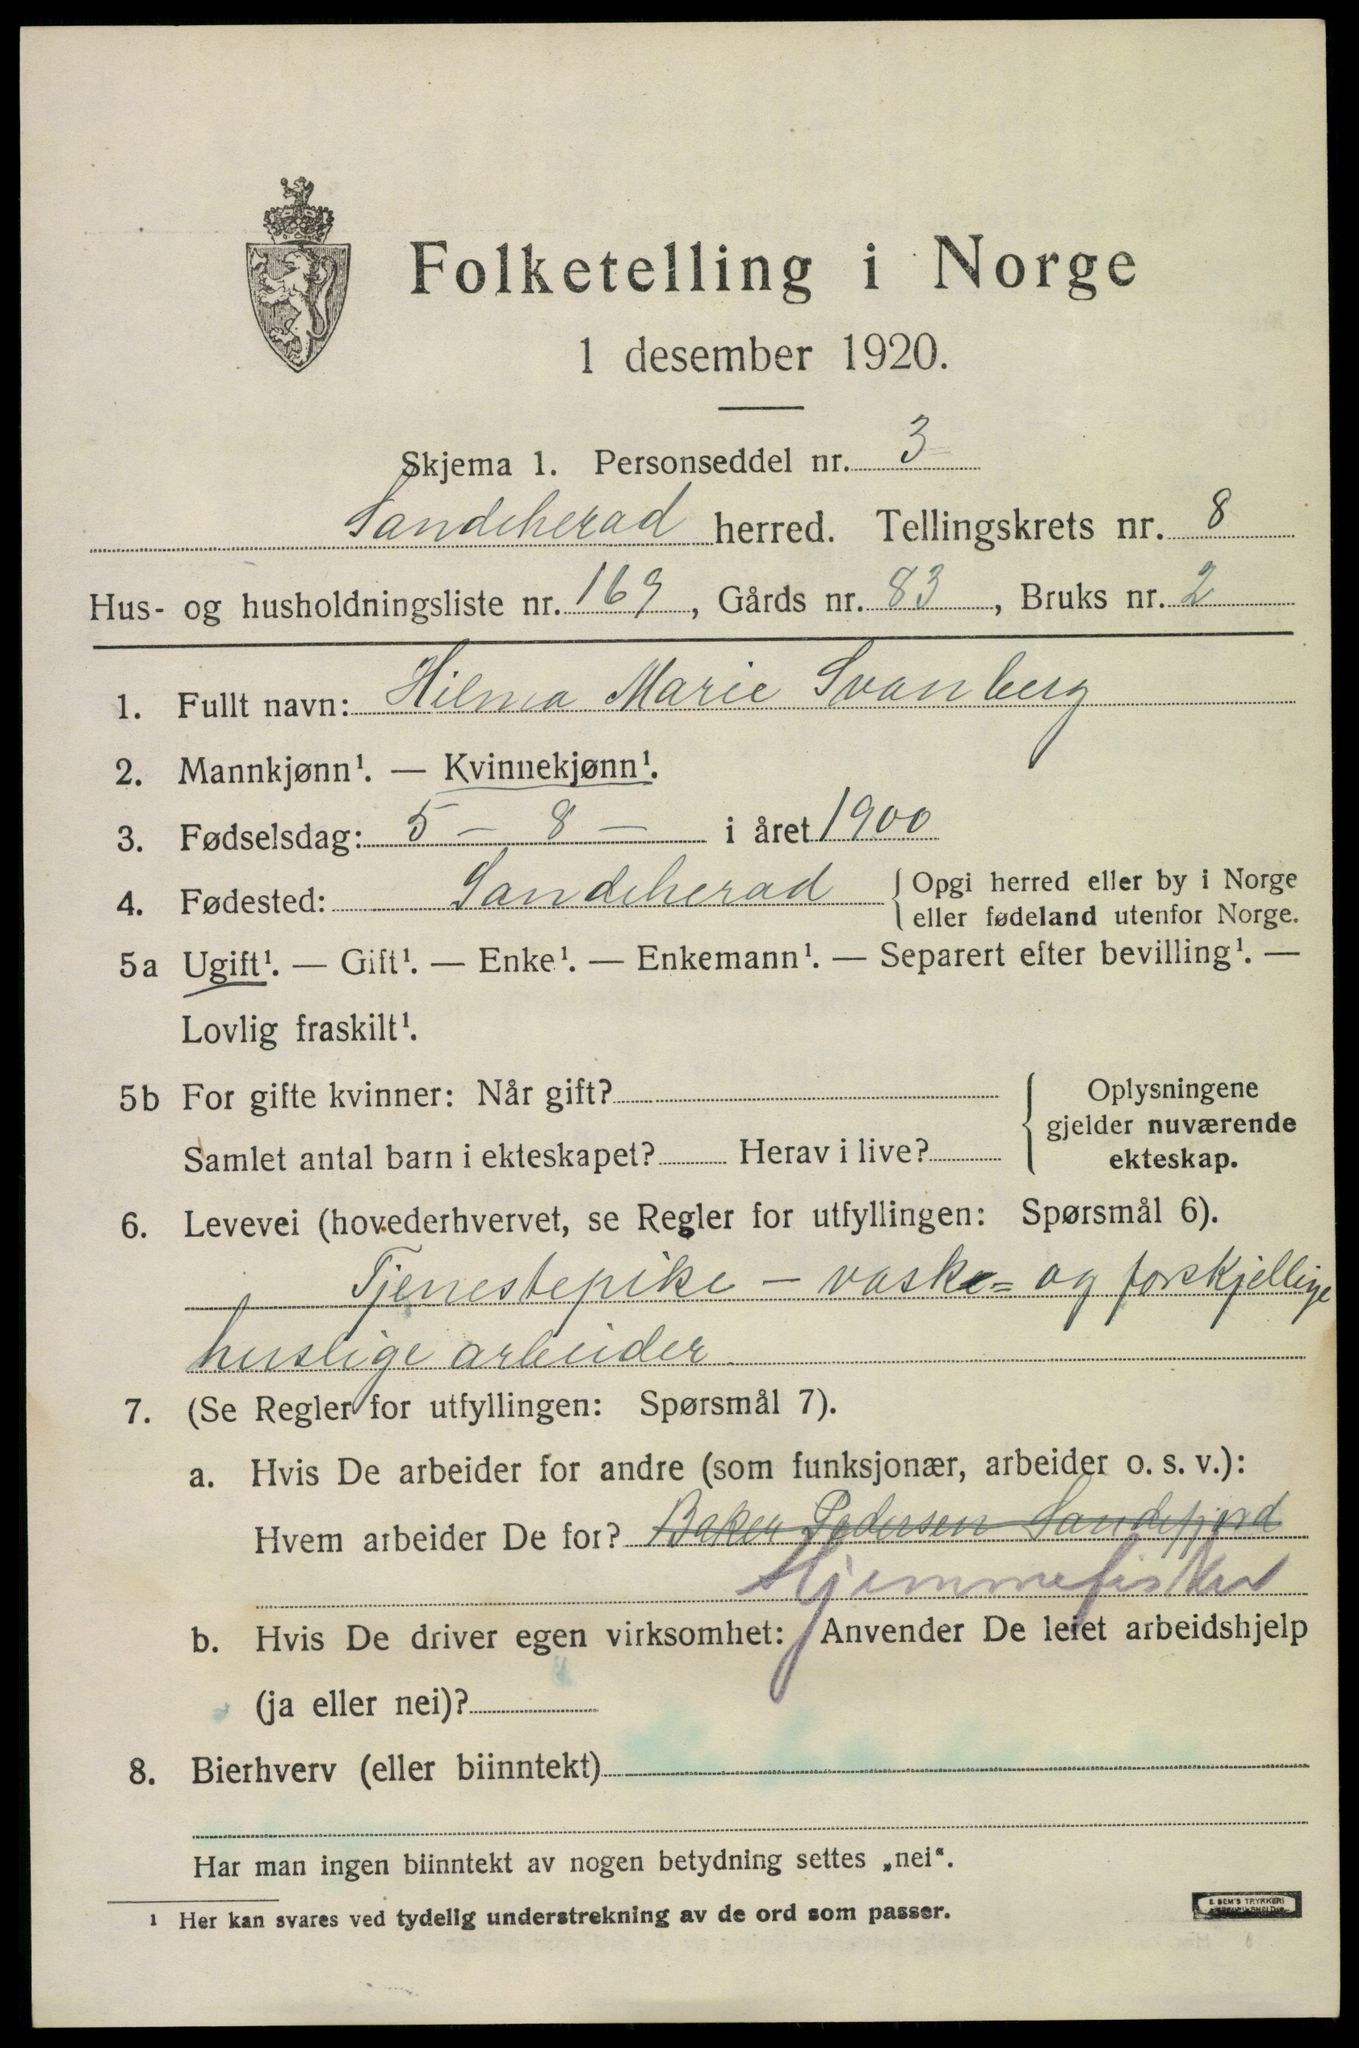 Folketelling i Norge
1 desember 1920.
Skjema 1. Personseddel nr. 3
Sandeherad herred. Tellingskrets nr. 8
Hus- og husholdningsliste nr. 169, Gårds nr. 83, Bruks nr. 2
1. Fullt navn: Hilma Marie Svanberg
2. Mannkjønn¹. — Kvinnekjønn¹.
3. Fødselsdag: 5 – 8 – i året 1900
4. Fødested: Sandeherad { Opgi herred eller by i Norge
eller fødeland utenfor Norge.
5a Ugift¹. — Gift¹. — Enke¹. — Enkemann¹. — Separert efter bevilling¹. —
Lovlig fraskilt¹.
5b For gifte kvinner: Når gift?
Samlet antal barn i ekteskapet? Herav i live?
Oplysningene
gjelder nuværende
ekteskap.
6. Levevei (hovederhvervet, se Regler for utfyllingen: Spørsmål 6).
Tjenestepike – vaske= og forskjellige
huslige arbeider
7. (Se Regler for utfyllingen: Spørsmål 7).
a. Hvis De arbeider for andre (som funksjonær, arbeider o. s. v.):
Hvem arbeider De for? Baker Pedersen Sandefjord
b. Hvis De driver egen virksomhet: Anvender De leiet arbeidshjelp
(ja eller nei)?
8. Bierhverv (eller biinntekt)
Har man ingen biinntekt av nogen betydning settes „nei“.
¹ Her kan svares ved tydelig understrekning av de ord som passer.